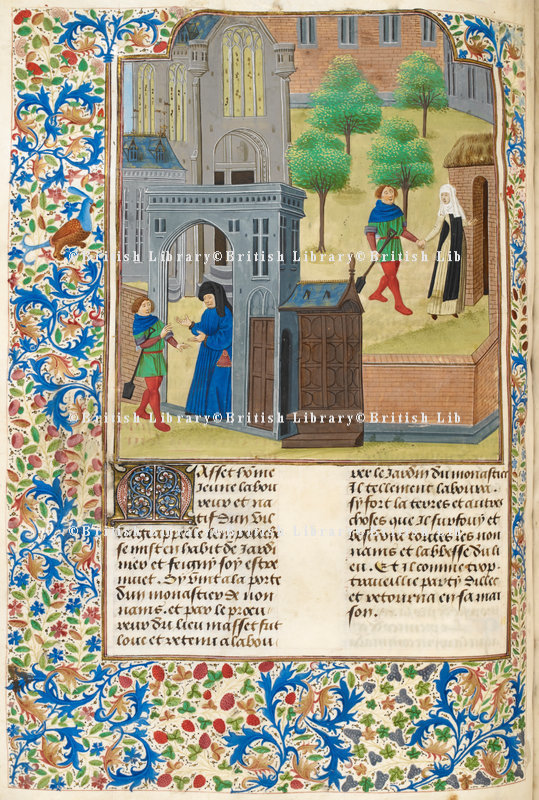 ©British Library©British Library©British Lib
©British Library©British Library©British Lib
Masset home
Jeune labou
reur et na
tif dun vil
laige appele
se mist en habit de Jardi
nier et feigny soy estre
muet. Sy vint a la porte
dun monastier de non
nains. et par le procu
reur du lieu masset fut
loue et retenu a labou
rer le Jardin du monastie
Il tellement laboura
sy fort la terres et autres
choses que Il et
toutes les non
nains et labbesse du li
eu. Et il comme trop
travaillie party dillec
et retourna en sa mai
son.